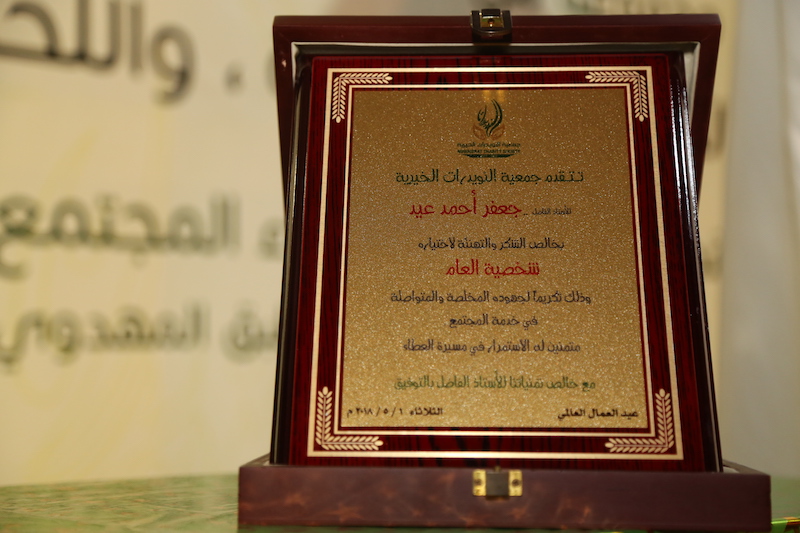 ، واللح
ء المجتمع
المهدوي
جمعية النويدرات الخيرية
تتقدم جمعية النويدرات الخيرية
للأستاذ الفاضل .. جعفر أحمد عيد
بخالص الشكر والتهنئة لاختياره
شخصية العام
وذلك تكريماً لجهوده المخلصة والمتواصلة
في خدمة المجتمع
متمنين له الأستمرار في مسيرة العطاء
مع خالص تمنياتنا للأستاذ الفاضل بالتوفيق
عيد العمال العالمي
الثلاثاء ١ / ٥ / ٢٠١٨ م